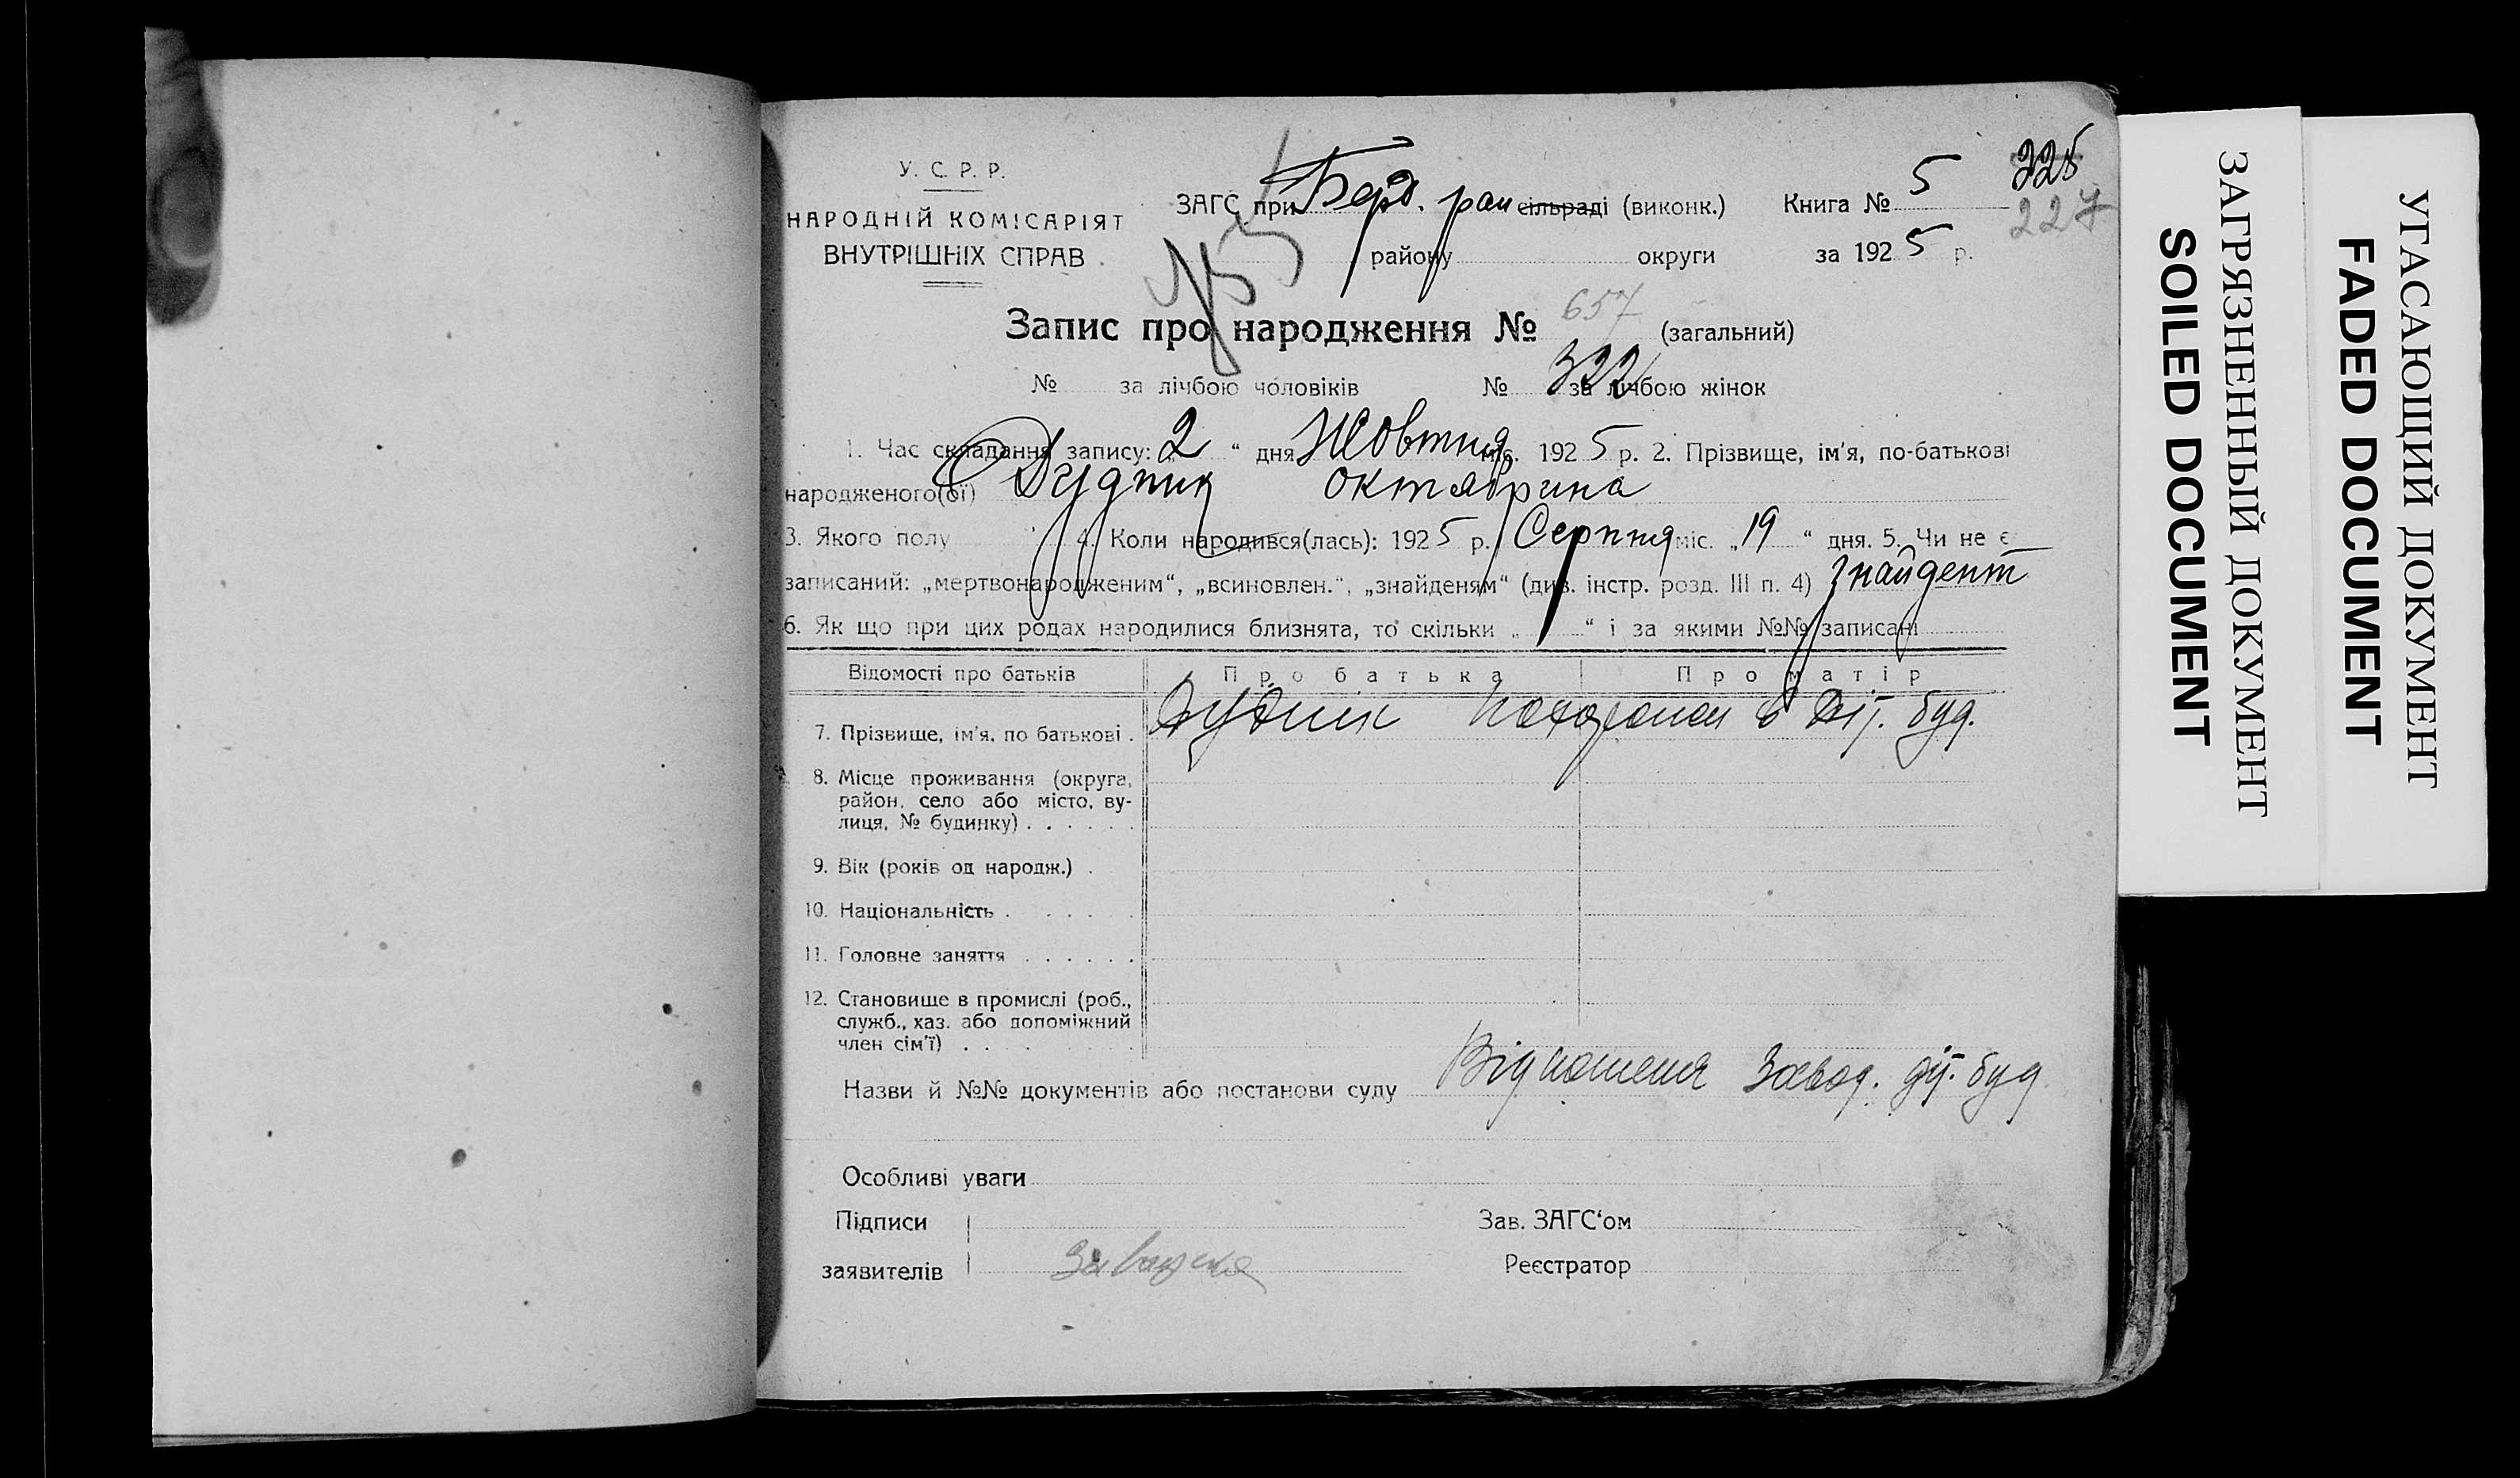 У. С. Р. Р.
НАРОДНІЙ КОМІСАРІЯТ
ВНУТРІШНІХ СПРАВ
ЗАГС при Берд. рай сільраді (виконк.) Книга № 5
району округи за 1925 р.
325
227
№5
Запис про народження № 657 (загальний)
№ за лічбою чоловіків № 322 за лічбою жінок
1. Час складання запису: „2“ дня Жовтня міс. 1925 р. 2. Прізвище, ім'я, по-батькові
народженого(ої) Дудник Октябрина
3. Якого полу 4. Коли народився(лась): 1925 р. Серпня міс. „19“ дня. 5. Чи не є
записаний: „мертвонародженим“, „всиновлен.“, „знайденям“ (див. інстр. розд. III п. 4) знайдент
6. Як що при цих родах народилися близнята, то скільки „ “ і за якими №№ записані
Відомості про батьків Про батька Про матір
7. Прізвище, ім'я, по батькові . Дудник в Дит. буд.
8. Місце проживання (округа,
район, село або місто, ву-
лиця, № будинку) . . . . . .
9. Вік (років од народж.) .
10. Національність . . . . .
11. Головне заняття . . . . . .
12. Становище в промислі (роб.,
служб., хаз. або допоміжний
член сім'ї) . . .
Назви й №№ документів або постанови суду Відношеня Завод. дит. буд
Особливі уваги
Підписи Зав. ЗАГС'ом
заявителів Реєстратор
ЗАГРЯЗНЕННЫЙ ДОКУМЕНТ
SOILED DOCUMENT
УГАСАЮЩИЙ ДОКУМЕНТ
FADED DOCUMENT